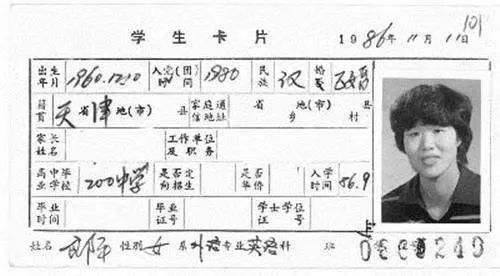 101
学生卡片 1986年11月11日
出生年月 1960.12.10 入党(团)时间 1980 民族 汉 婚姻
籍贯 天省津地(市) 县 家庭通信地址 省 地(市) 县 乡 村
家长姓名 工作单位及职务
高中毕业学校 200中学 是否定向招生 是否华侨 入学时间 86.9
毕业时间 毕业证号 学士学位证号
姓名 郎平 性别 女 系 外语 专业 英语 科 班